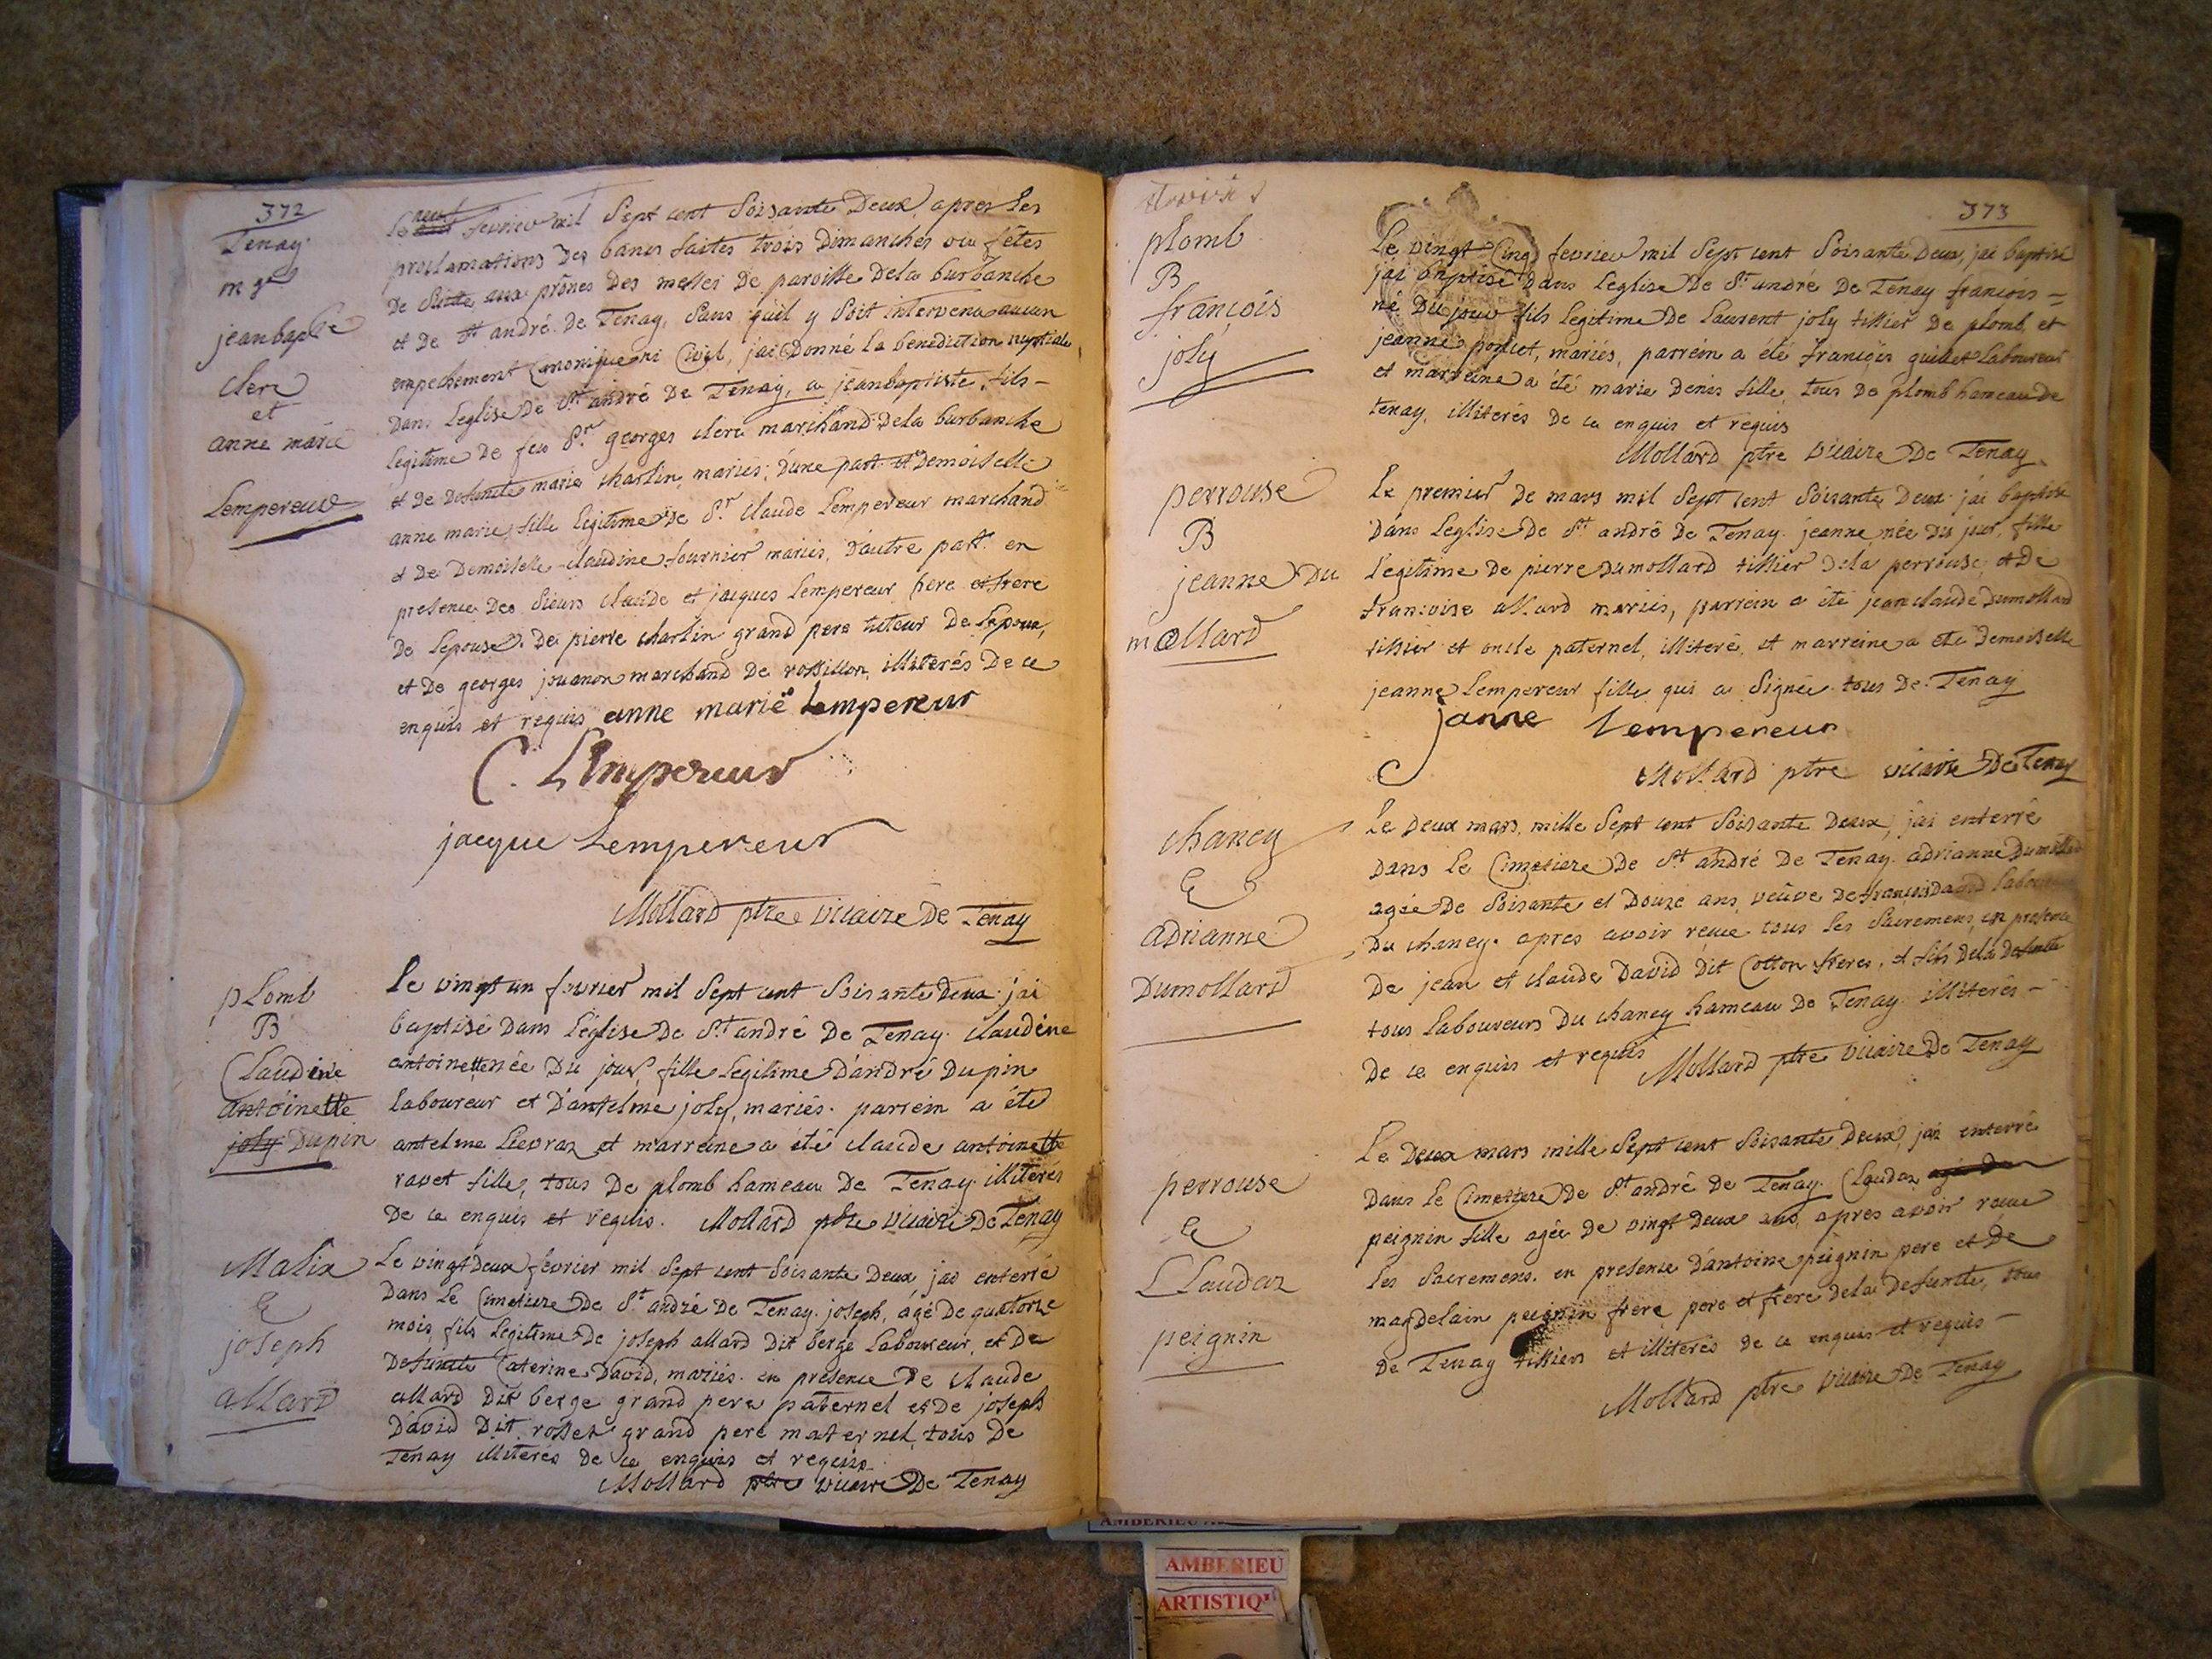 372
Tenay
mge
jean bapte
clerc
et
anne marie
Lempereur
Le neuf fevrier mil Sept cent Soisante Deux, apres les
proclamations Des bancs faites trois Dimanches ou fêtes
De Suitte aux prônes Des messes De paroisse De la burbanche
et De St andré De Tenay, Sans quil y Soit intervenu aucun
empechement Canonique ni Civil, jai Donné la benediction nuptiale
Dans Leglise De St andré De Tenay, a jean baptiste, fils
legitime De feu Sr georges clerc marchand De la burbanche
et De Defuncte marie charlin, mariés, D'une part et Demoiselle
anne marie, fille legitime De Sr Claude Lempereur marchand
et De Demoiselle claudine fournier mariés, D'autre part. en
presence Des Sieurs claude et jacques Lempereur pere et frere
De Lepouse, De pierre charlin grand pere tuteur De Lepoux,
et De georges jouanon marchand De rossillon, illiterés De ce
enquis et requis anne marie lempereur
C. LEmpereur
jacque Lempereur
Mollard ptre vicaire De Tenay
plomb
B
Claudine
antoinette
joly Dupin
Le vingt un fevrier mil Sept cent Soisante Deux jai
baptisé Dans L'église De St andré De Tenay claudine
antoinette née Du jour, fille Legitime D'andré Dupin
laboureur et D'antelme joly, mariés. parrein a été
antelme Lievraz et marreine a été claude antoinette
ravet fille, tous De plomb hameau De Tenay illiterés
De ce enquis et requis. Mollard ptre vicaire De Tenay
Malix
E
joseph
allard
Le vingt Deux fevrier mil Sept cent Soisante Deux jai enterré
Dans Le Cimetiere De St andré De Tenay joseph, âgé De quatorze
mois, fils Legitime De joseph allard Dit berge Laboureur, et De
Defuncte Caterine David, mariés. en présence De claude
allard Dit berge grand pere paternel et De joseph
David Dit rosset grand pere maternel, tous De
Tenay illiterés de ce enquis et requis
Mollard ptre vicaire De Tenay
373
plomb
B
françois
joly
Le vingt Cinq fevrier mil Sept cent Soisante Deux, jai baptisé
jai baptisé Dans Leglise De St andré De Tenay francois =
né Du jour fils Legitime De Laurent joly tissier De plomb, et
jeanne poncet, mariés, parrein a été françois guillet Laboureur
et marreine a été marie Denis fille, tous De plomb hameau De
tenay. illiterés De ce enquis et requis
Mollard ptre vicaire De Tenay
perrouse
B
jeanne Du
mollard
Le premier de mars mil Sept cent Soisante Deux jai baptisé
Dans Leglise De St andré De Tenay. jeanne, née Du jour, fille
Legitime De pierre Dumollard tissier De la perrouse, et De
francoise allard mariés, parrein a été jean claude Dumollard
tissier et oncle paternel, illiteré, et marreine a été Demoiselle
jeanne Lempereur fille qui a Signée tous De Tenay
janne lempereur
Mollard ptre vicaire De Tenay
chaney
E
adrianne
Dumollard
Le Deux mars, mille Sept cent Soisante Deux, jai enterré
Dans Le Cimetiere De St andré De Tenay. adrianne Dumollard
agée De Soisante et Douze ans, veuve De francois David Labour
Du chaney. apres avoir recue tous Les Sacremens, en presence
De jean et claude David Dit Cotton freres, et fils De la Defuncte
tous laboureurs Du chaney hameau De Tenay illiterés
De ce enquis et requis Mollard ptre vicaire De Tenay
perrouse
E
Claudaz
peignin
Le Deux mars mille Sept cent Soisante Deux, jai enterré
Dans Le Cimetiere De St andré De Tenay. Claudaz agée De
peignin fille agée De vingt Deux ans, apres avoir recue
Les Sacremens. en presence D'antoine peignin pere et De
magdelain peignin frere, pere et frere De la Defuncte, tous
De Tenay tissiers et illiterés de ce enquis et requis
Mollard ptre vicaire De Tenay
AMBERIEU
AMBERIEU
ARTISTIQ